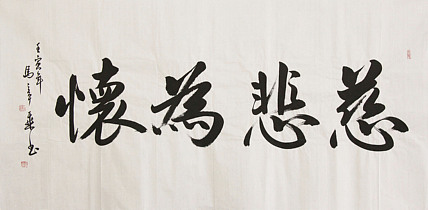 慈悲為懷
壬寅年
馬
書